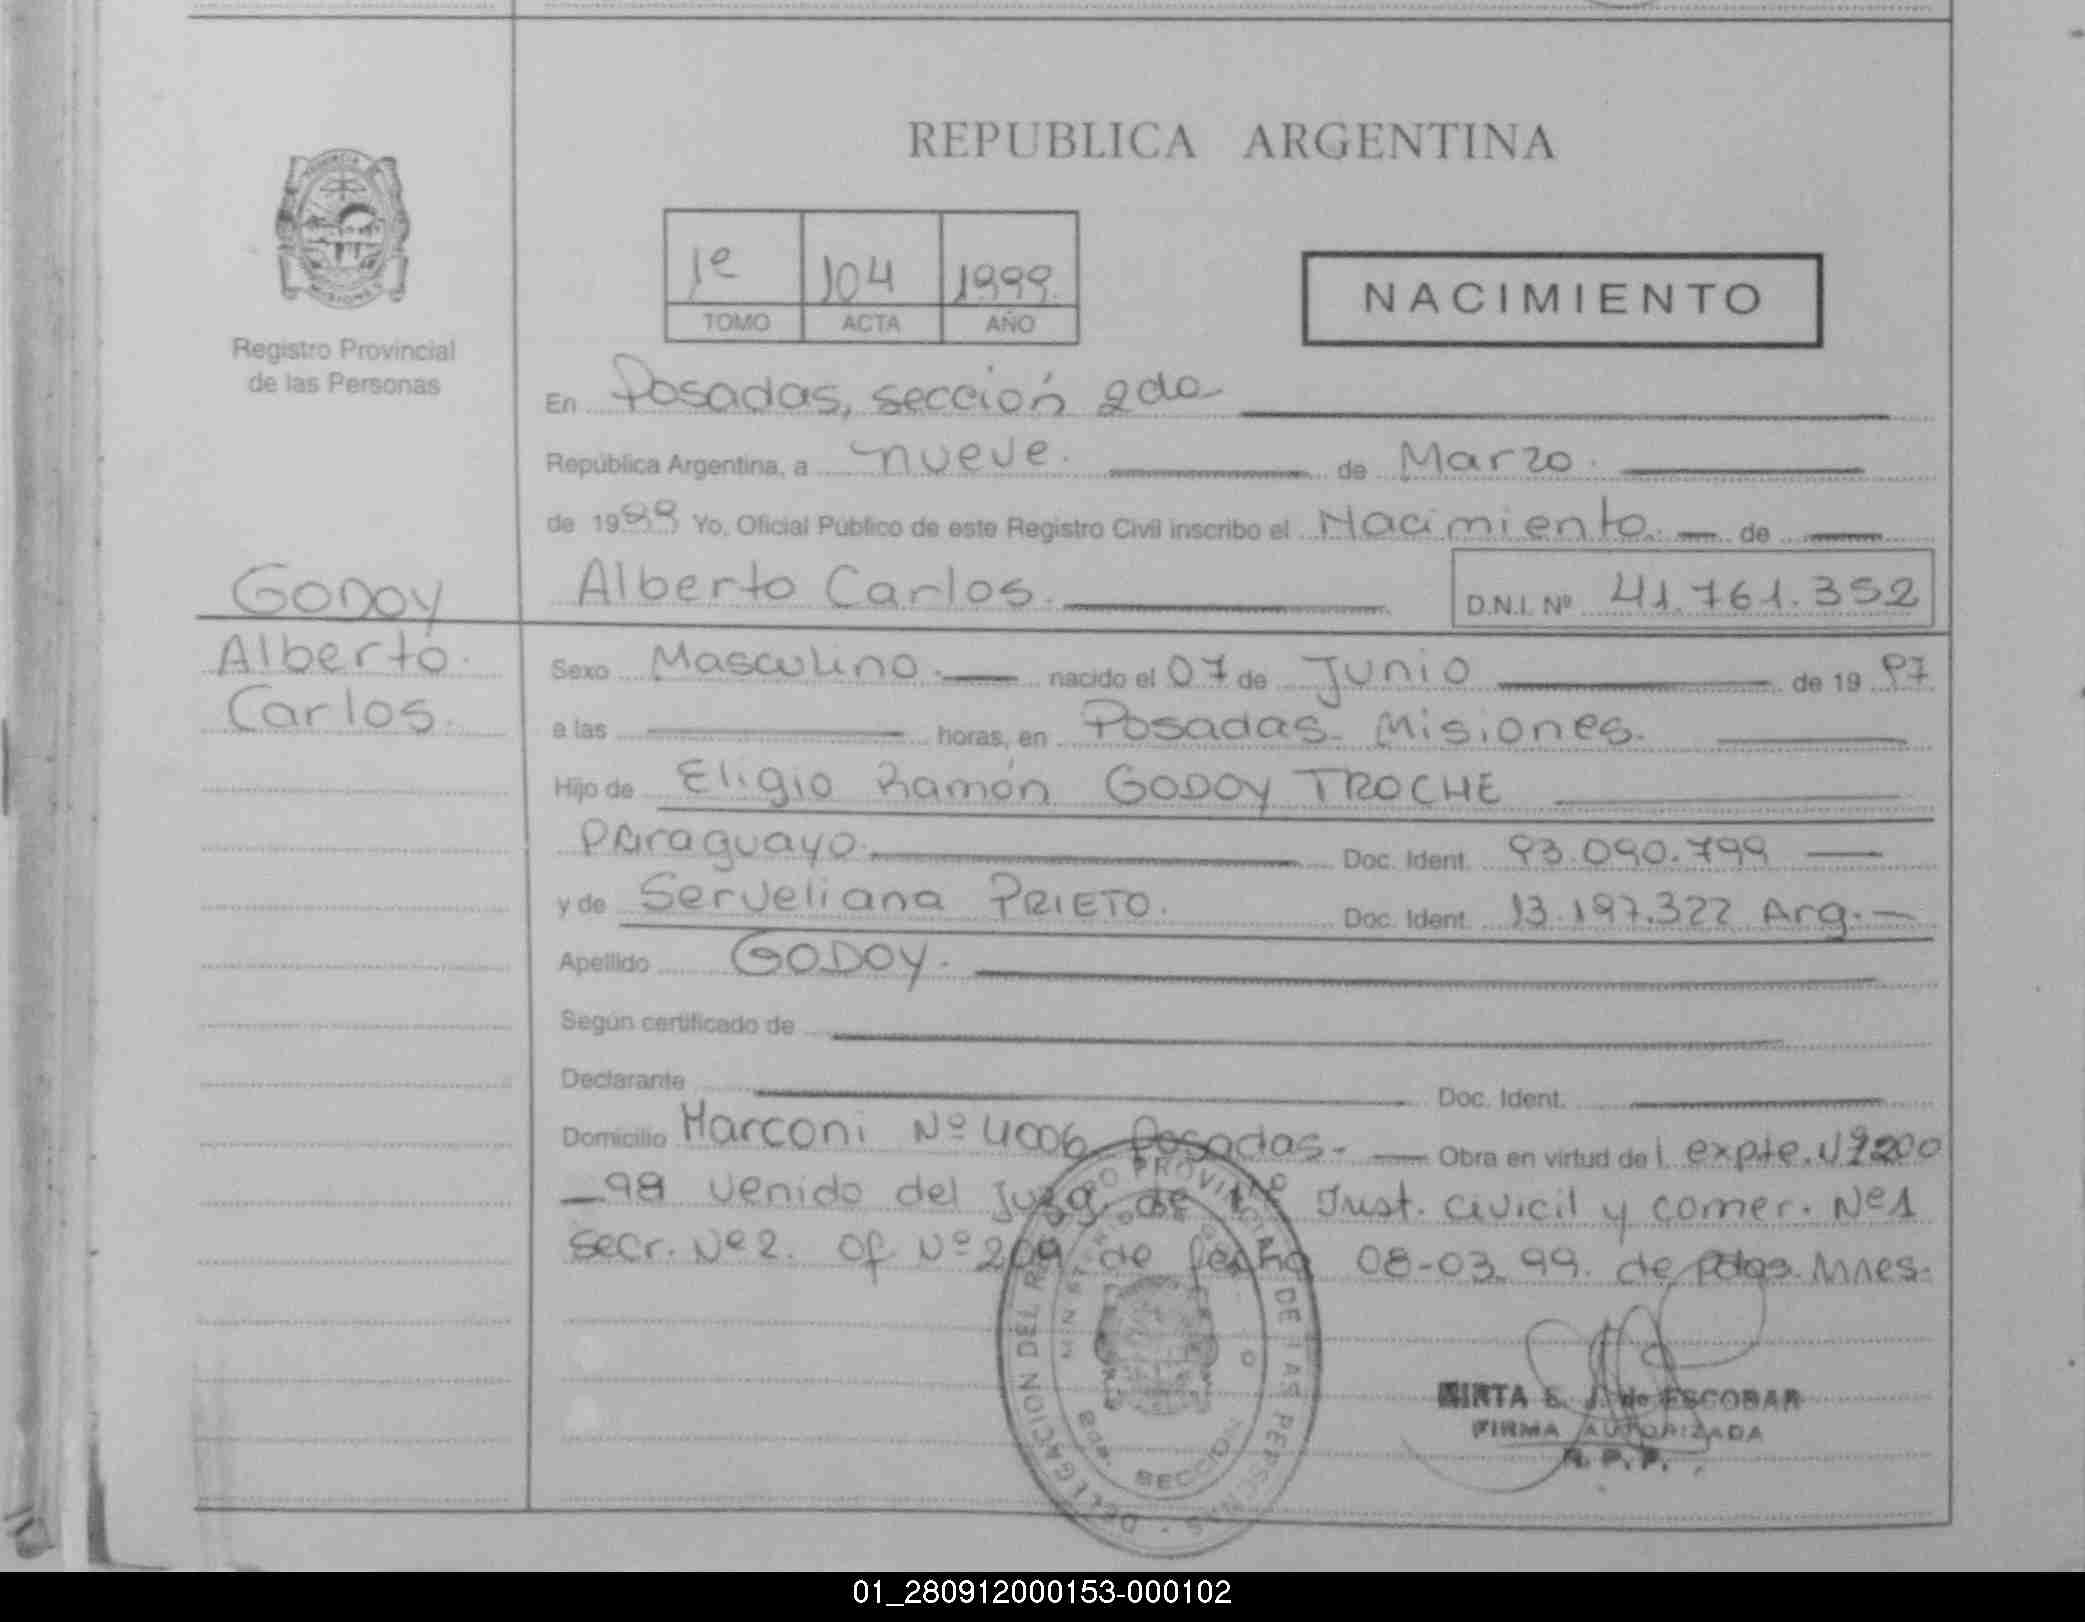 REPUBLICA ARGENTINA
1º 104 1999
TOMO ACTA AÑO
NACIMIENTO
Registro Provincial
de las Personas
En Posadas, sección 2da
República Argentina, a nueve. de Marzo.
de 1999 Yo, Oficial Público de este Registro Civil inscribo el Nacimiento. de
GODOY
Alberto.
Carlos.
Alberto Carlos. D.N.I. Nº 41.761.352
Sexo Masculino. nacido el 07 de Junio de 19 97
a las horas, en Posadas. Misiones.
Hijo de Eligio Ramón GODOY TROCHE
Paraguayo. Doc. Ident. 93.090.799
y de Serveliana PRIETO. Doc. Ident. 13.197.322 Arg.
Apellido GODOY.
Según certificado de
Declarante Doc. Ident.
Domicilio Marconi Nº 4006 Posadas. Obra en virtud de l expte. Nº 200
98 venido del Juzg. de 1º Inst. civicil y comer. Nº1
secr. Nº 2. of Nº 209 de fecha 08-03.99. de Pdas. Mnes.
DELEGACION DEL REGISTRO PROVINCIAL DE LAS PERSONAS
MINISTERIO DE
2da. SECCION
MIRTA E. J. de ESCOBAR
FIRMA AUTORIZADA
R. P. P.
01_280912000153-000102